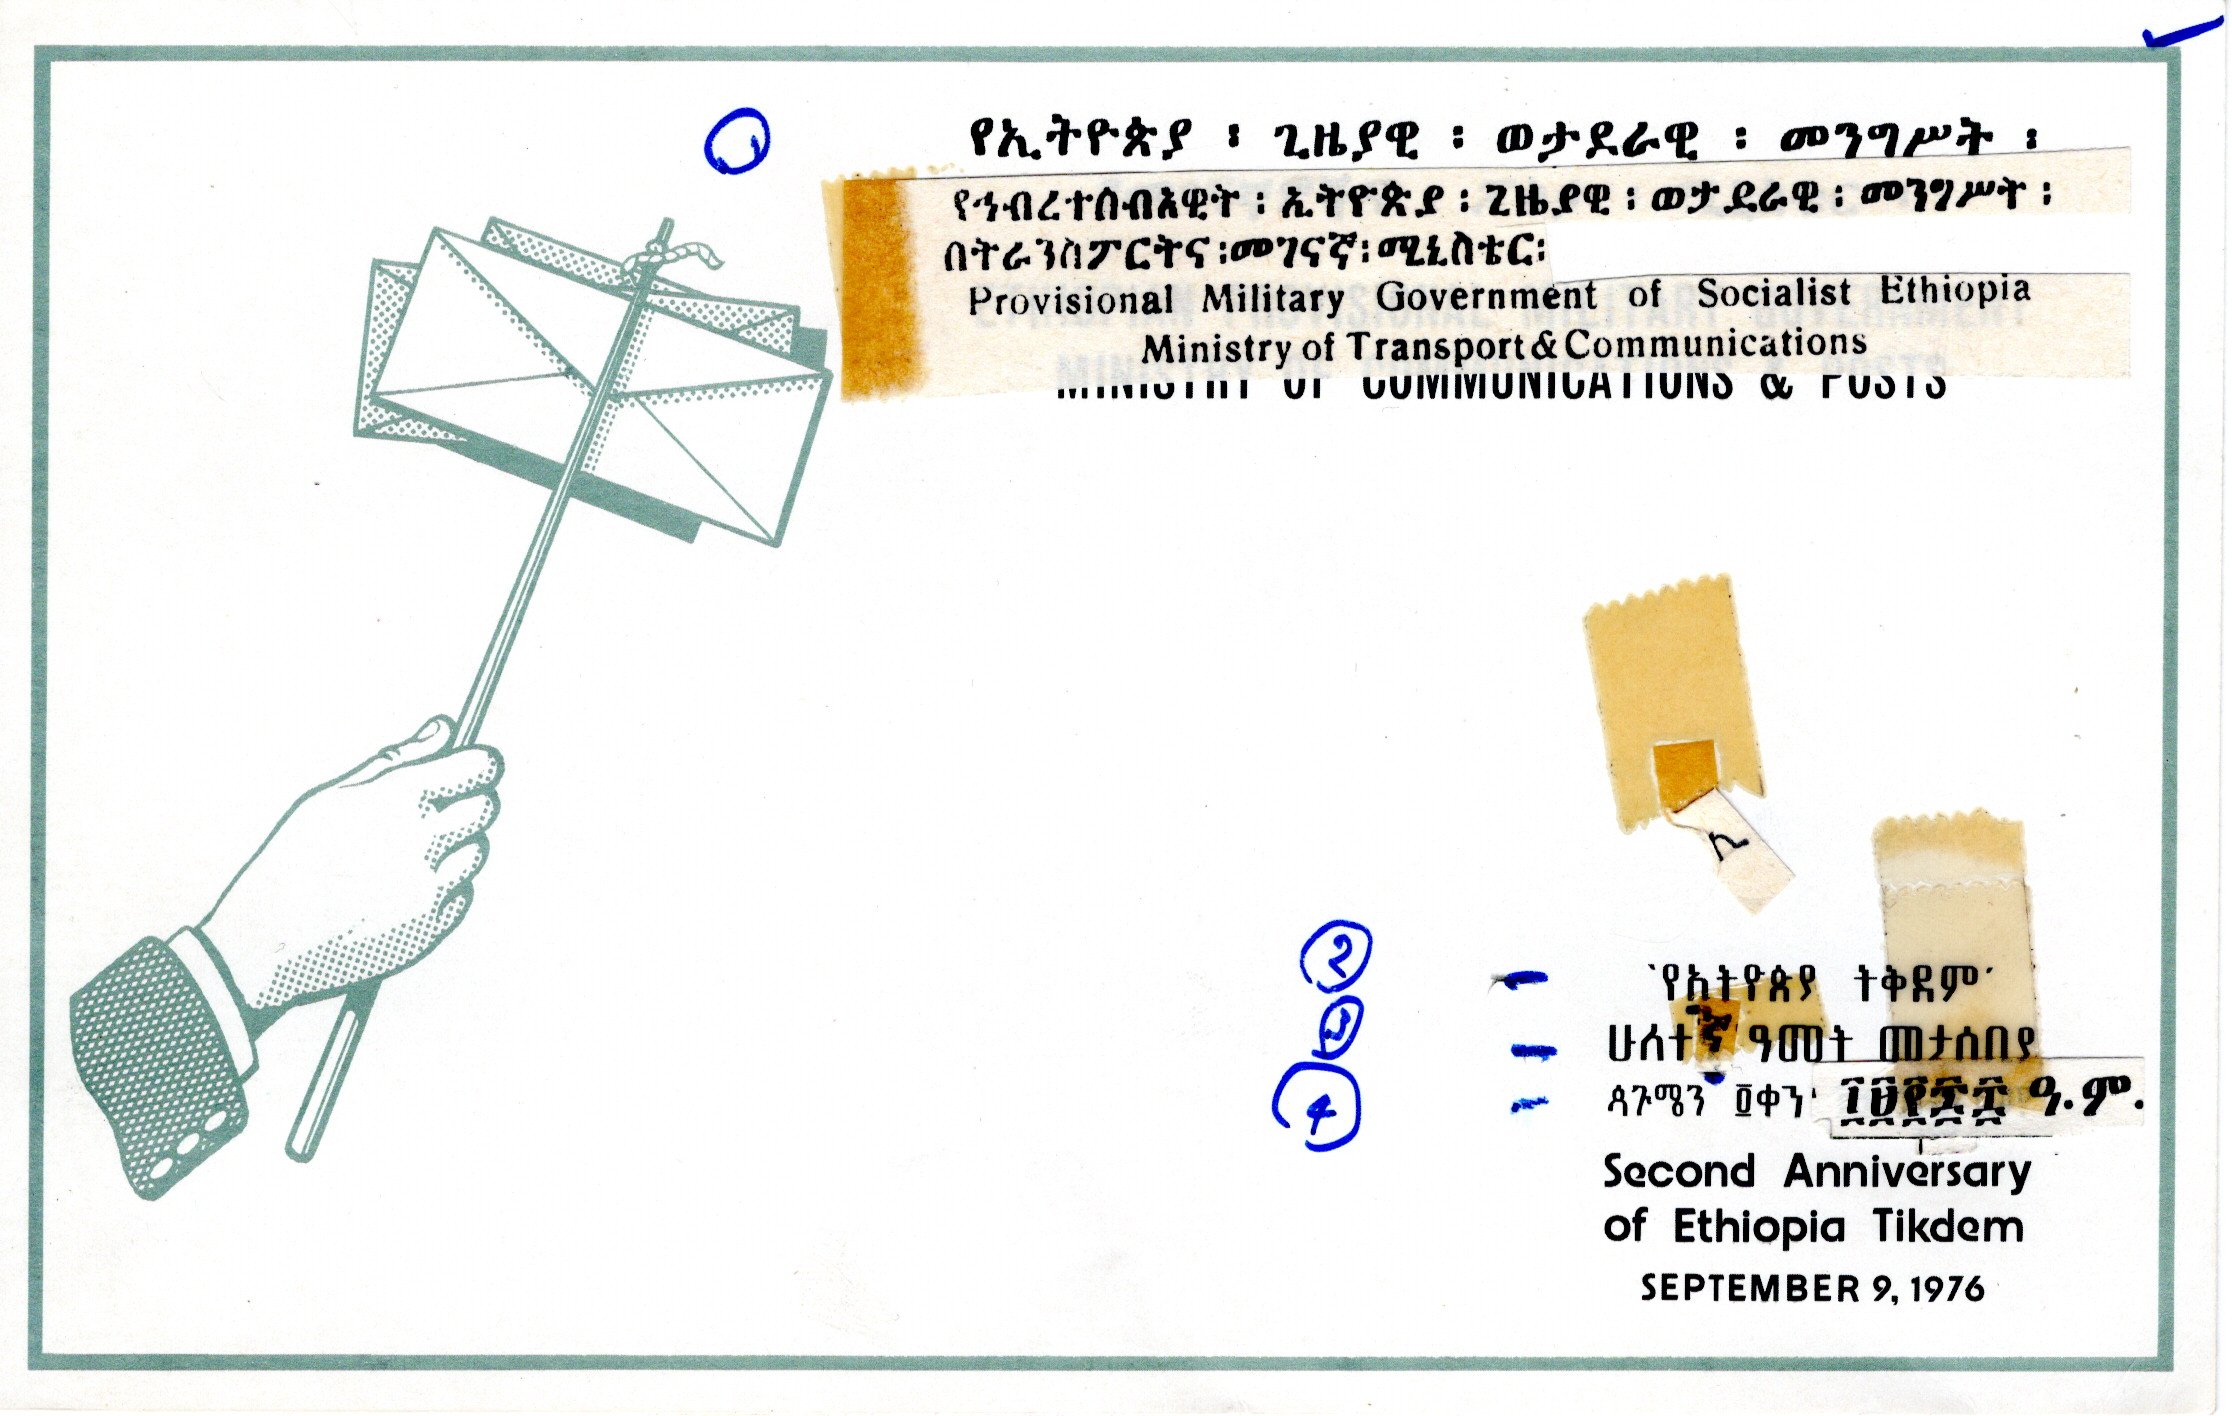 የኢትዮጵያ ፡ ጊዜያዊ ፡ ወታደራዊ ፡ መንግሥት ፡
የኅብረተሰብአዊት ፡ ኢትዮጵያ ፡ ጊዜያዊ ፡ ወታደራዊ ፡ መንግሥት ፡
በትራንስፖርትና ፡ መገናኛ ፡ ሚኒስቴር ፡
Provisional Military Government of Socialist Ethiopia
Ministry of Transport & Communications
MINISTRY OF COMMUNICATIONS & POSTS
2
3
4
'የኢትዮጵያ ትቅደም'
ሁለተኛ ዓመት መታሰቢያ
ጳጉሜን ፬ቀን ፲፱፻፷፰ ዓ.ም.
Second Anniversary
of Ethiopia Tikdem
SEPTEMBER 9, 1976